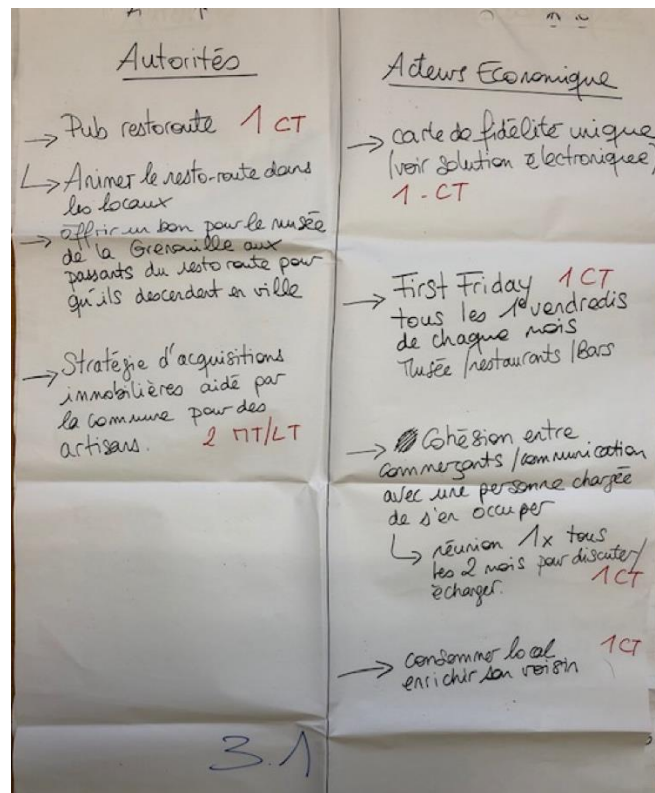 Autorités
→ Pub restoroute 1 CT
↳ Animer le resto-route dans
les locaux
→ offrir un bon pour le musée
de la Grenouille aux
passants du resto route pour
qu'ils descendent en ville
→ Stratégie d'acquisitions
immobilières aidé par
la commune pour des
artisans. 2 MT/LT
3.1
Acteurs Economique
→ carte de fidélité unique
(voir solution électronique)
1 - CT
→ First Friday 1 CT
tous les 1e vendredis
de chaque mois
Musée / restaurants / Bars
→ Cohésion entre
commerçants / communication
avec une personne chargée
de s'en occuper
↳ réunion 1x tous
les 2 mois pour discuter/
échanger. 1 CT
→ consommer local 1 CT
enrichir son voisin